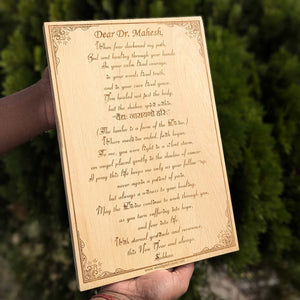 Dear Dr. Mahesh,
When fear darkened my path,
God sent healing through your hands.
In your calm lived courage,
in your words lived truth,
and in your care lived grace.
You healed not just the body,
but the shaken spirit within.
(The healer is a form of the Divine.)
Where medicine ended, faith began.
To me, you were light in a silent storm,
an angel placed gently in the shadow of cancer.
I pray this life keeps me only as your follow up,
never again a patient of pain,
but always a witness to your healing.
May the Divine continue to work through you,
as you turn suffering into hope,
and fear into life.
With eternal gratitude and reverence,
this New Year and always.